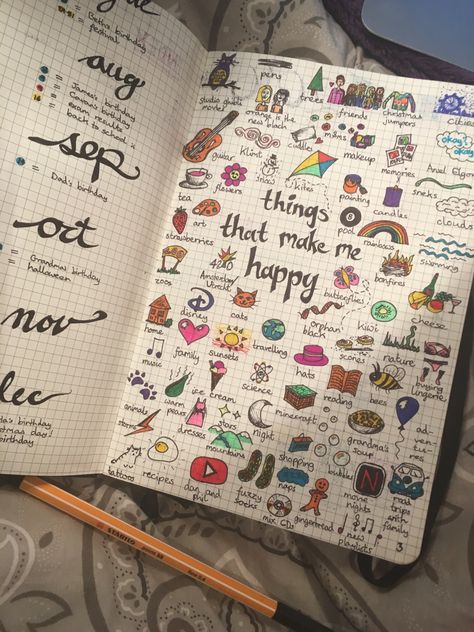 = Beth's birthday
festival
aug
= James's birthday
= Emma's birthday
= exam results
= back to school :
sep
= Dad's birthday
oct
= Grandma's birthday
= halloween
nov
dec
birthday
day
birthday
things
that make me
happy
studio ghibli
movies
pens
orange is the
new black
trees
friends
christmas
jumpers
cities
guitar
Klimt
snow
candle
movies
makeup
memories
okay?
okay.
hazel grace
snakes
tea
flowers
kites
painting
candles
clouds
strawberries
art
pool
rainbows
swimming
zoos
4260
Amsterdam
butterflies
bonfires
cheese
home
disney
cats
orphan
black
kiwi
family
sunsets
travelling
scones
nature
buying
lingerie
music
ice cream
science
hats
reading
bees
animals
warm
dresses
stars
night
minecraft
grandma's
soup
ad-
ven-
tu-
res
tattoos
recipes
mountains
shopping
bubbles
dan and
phil
fuzzy
socks
naps
mix CDs
gingerbread
N
movie
nights
new
playlists
road
trips
with
family
3
STABILO
point 88